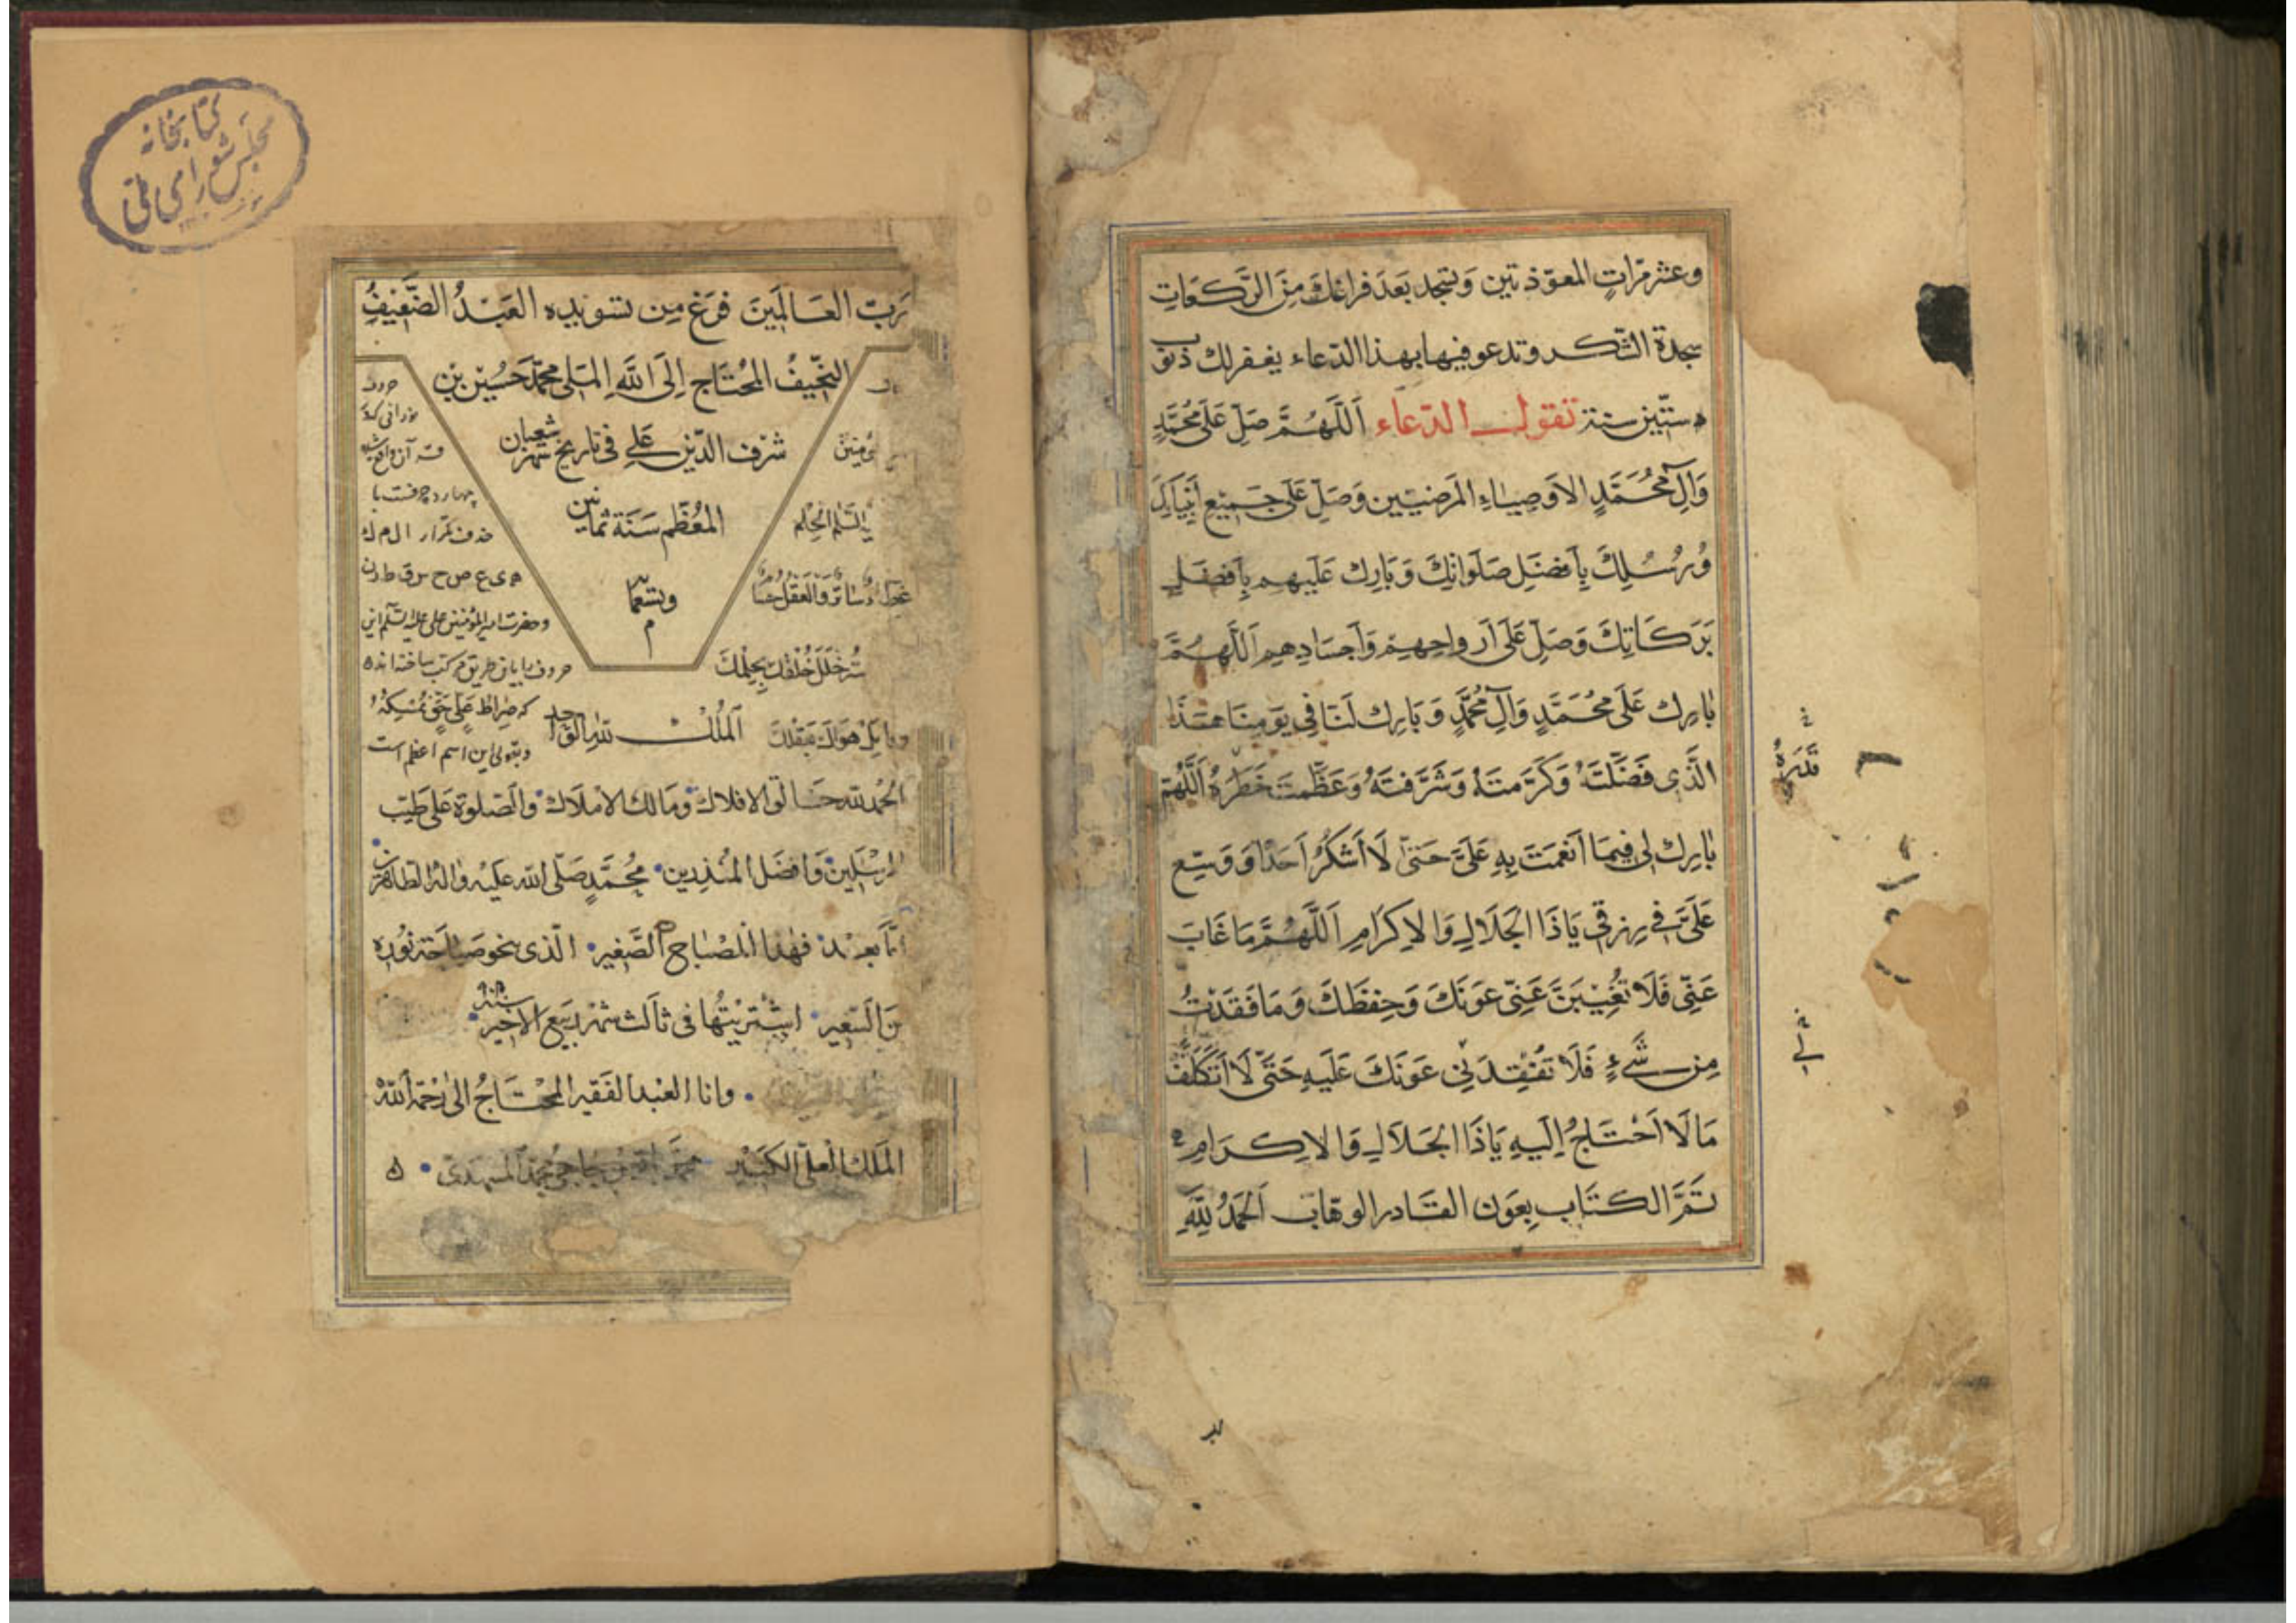 وعشر مرّاتٍ المعوّذتين وَتسجد بَعدَ فراغكَ مِنَ الرَّكَعَات
سجدة الشّكر وتدعو فيها بهذا الدّعاء يغفر لك ذنوب
ستّين سنة تقول الدّعاء اَللَّهُمَّ صَلِّ عَلَى مُحَمَّدٍ
وَآلِ مُحَمَّدٍ الاَوصِيَاءِ المَرضيّين وَصَلِّ عَلَى جَمِيْعِ اَنبِيَائِكَ
وَرُسُلِكَ بِاَفضَلِ صَلَوَاتِكَ وَبَارِك عَلَيهِم بِاَفضَلِ
بَرَكَاتِكَ وَصَلِّ عَلَى اَرواحِهِم وَاَجسَادِهِم اَللَّهُمَّ
بَارِك عَلَى مُحَمَّدٍ وَآلِ مُحَمَّدٍ وَبَارِك لَنَا فِي يَومِنَا هَذَا
الَّذِي فَضَّلتَهُ وَكَرَّمتَهُ وَشَرَّفتَهُ وَعَظَّمتَ خَطَرَهُ اَللَّهُمَّ
بَارِك لِي فِيمَا اَنعَمتَ بِهِ عَلَيَّ حَتَّى لَا اَشكُرُ اَحَدًا وَوَسِّع
عَلَيَّ فِي رِزقِي يَاذَا الجَلَالِ وَالاِكرَامِ اَللَّهُمَّ مَا غَابَ
عَنِّي فَلَا تُغَيِّبَنَّ عَنِّي عَونَكَ وَحِفظَكَ وَمَا فَقَدْتُ
مِن شَيءٍ فَلَا تُفْقِدنِي عَونَكَ عَلَيهِ حَتَّى لَا اَتَكَلَّفَ
مَا لَا اَحْتَاجُ اِلَيهِ يَاذَا الجَلَالِ وَالاِكرَامِ
تَمَّ الكتَاب بِعَون القَادر الوهّاب اَلحَمدُ لِلَّهِ
قَدرَهُ
كتابخانه
مجلس شورای ملی
رَبّ العَالَمِينَ فَرَغ مِن تسويده العَبْدُ الضَّعِيفُ
النَّحِيفُ المُحْتَاج اِلَى اللَّهِ المَلِي مُحَمَّد حُسَيْن بْن
شَرَف الدّين عَلي في تاريخ شهر شعبان
المُعَظَّم سَنَة ثمانين
وتسعمائة
م
حروف
نورانی که
چهارده حرفست با
حذف تکرار ال م ر ك
ه ی ع ص ح س ق ط ن
وحضرت امیرالمؤمنین علی علیه السّلم این
حروف را باین طریق مرکب ساخته‌اند
که صِرَاطُ عَلِيٍّ حَقٌّ نُمْسِكُهُ
وبقولی این اسم اعظم است
خُلُقَكَ بِحِلْمِكَ
هَوَاكَ بِعَقْلِكَ
اَلمُلْكُ لِلّهِ الوَاحِد
الحمد لله خالق الافلاك ومالك الاملاك والصّلوة عَلى طَيّب
المرسَلين وَافضَل المُنْذِرين مُحَمَّدٍ صَلّى الله عَلَيْه وَاله الطاهرين
امّا بعد فهذا المصباح الصّغير الّذى
اشتريتها في ثالث شهر ربيع الاخير
وانا العَبْد الفَقير المُحْتَاجُ الى رَحْمَة الله
المَلك العلىّ الكَبير